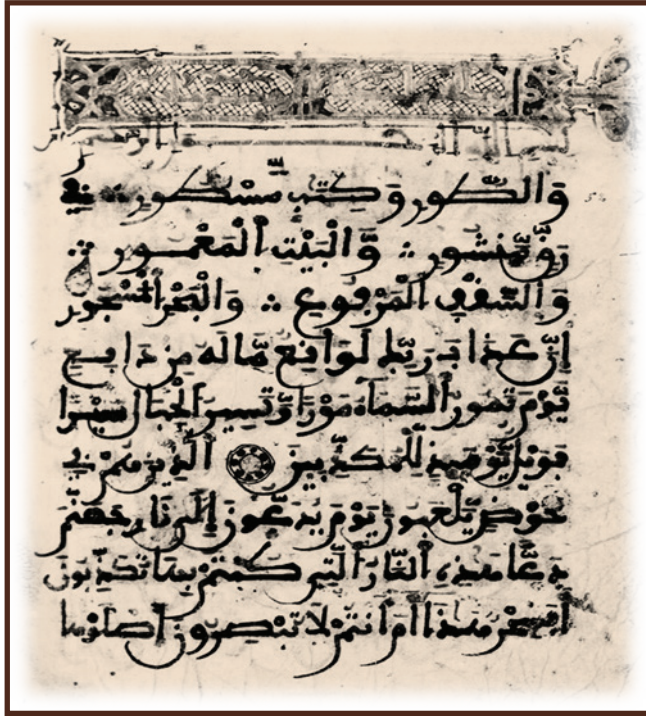 وَالطُّورِ وَكِتَٰبٍ مَّسْطُورٍ فِي
رَقٍّ مَّنشُورٍ ؞ وَالْبَيْتِ اِ۬لْمَعْمُورِ ؞
وَالسَّقْفِ اِ۬لْمَرْفُوعِ ؞ وَالْبَحْرِ اِ۬لْمَسْجُورِ
إِنَّ عَذَابَ رَبِّكَ لَوَاقِعٌ مَّا لَهُ مِن دَافِعٍ
يَّوْمَ تَمُورُ السَّمَاءُ مَوْرًا وَتَسِيرُ الْجِبَالُ سَيْرًا
فَوَيْلٌ يَّوْمَئِذٍ لِّلْمُكَذِّبِينَ الَّذِينَ هُمْ فِي
خَوْضٍ يَّلْعَبُونَ يَوْمَ يُدَعُّونَ إِلَى نَارِ جَهَنَّمَ
دَعًّا هَٰذِهِ النَّارُ الَّتِي كُنتُمْ بِهَا تُكَذِّبُونَ
أَفَسِحْرٌ هَٰذَا أَمْ أَنتُمْ لَا تُبْصِرُونَ اصْلَوْهَا